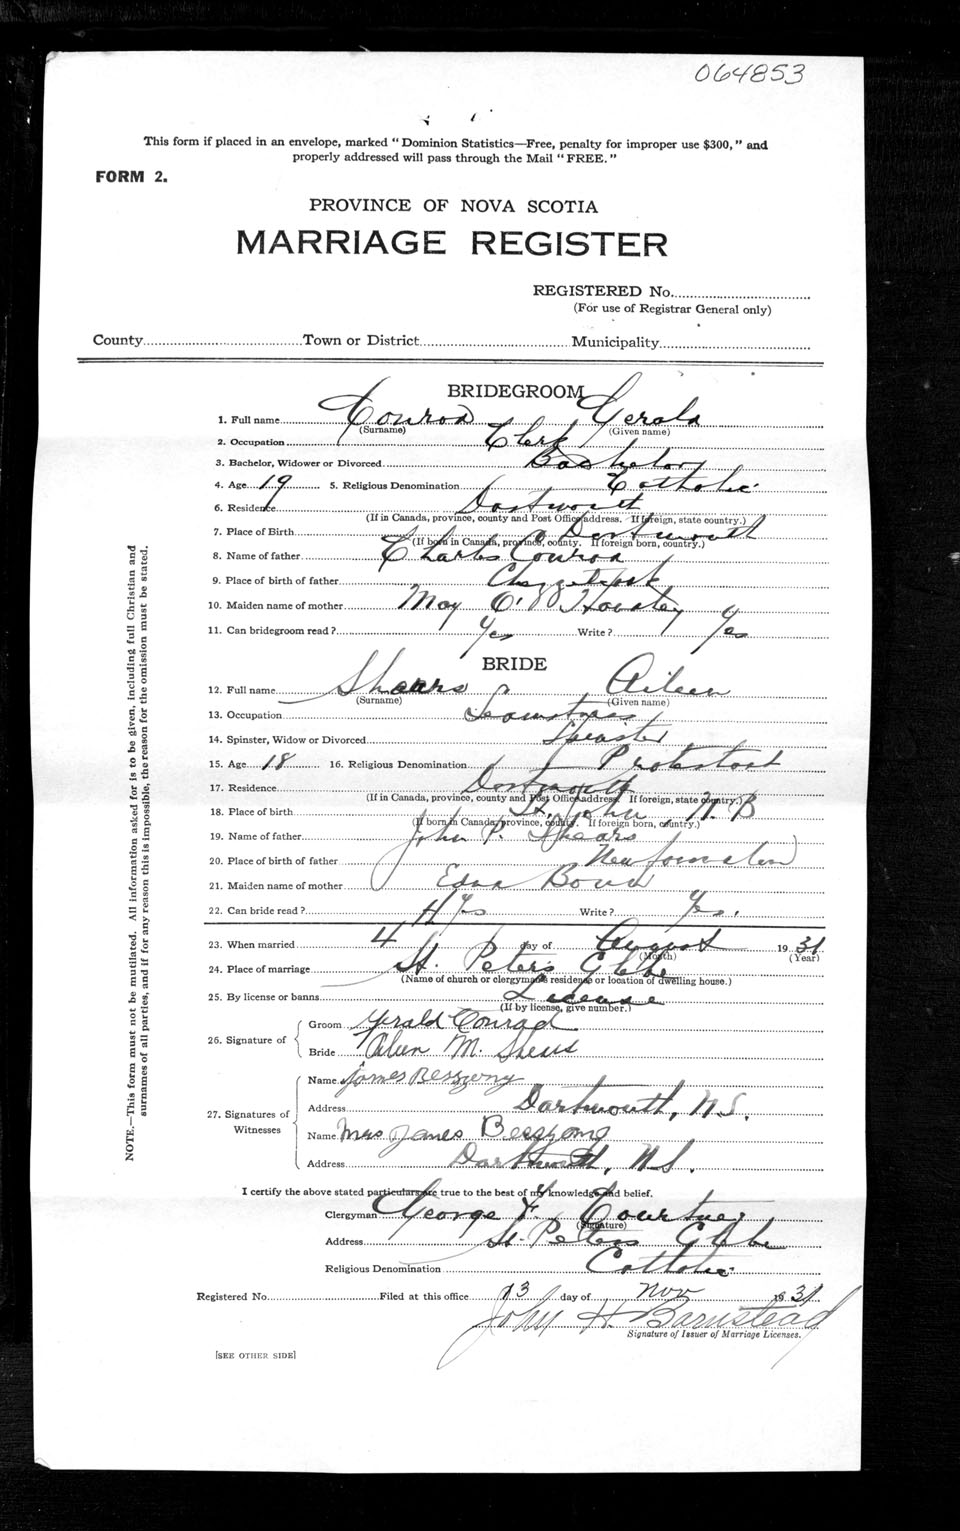 064853
This form if placed in an envelope, marked "Dominion Statistics—Free, penalty for improper use $300," and
properly addressed will pass through the Mail "FREE."
FORM 2.
PROVINCE OF NOVA SCOTIA
MARRIAGE REGISTER
REGISTERED No.
(For use of Registrar General only)
County Town or District Municipality
BRIDEGROOM
1. Full name Conrod Gerald
(Surname) (Given name)
2. Occupation Clerk
3. Bachelor, Widower or Divorced Bachelor
4. Age 19 5. Religious Denomination Catholic
6. Residence Dartmouth
(If in Canada, province, county and Post Office address. If foreign, state country.)
7. Place of Birth Dartmouth
(If born in Canada, province, county. If foreign born, country.)
8. Name of father Charles Conrod
9. Place of birth of father
10. Maiden name of mother May
11. Can bridegroom read? Yes Write? Yes
BRIDE
12. Full name Shears Aileen
(Surname) (Given name)
13. Occupation
14. Spinster, Widow or Divorced Spinster
15. Age 18 16. Religious Denomination Protestant
17. Residence Dartmouth
(If in Canada, province, county and Post Office address. If foreign, state country.)
18. Place of birth St. John, N.B
(If born in Canada, province, county. If foreign born, country.)
19. Name of father John P. Shears
20. Place of birth of father
21. Maiden name of mother Edna
22. Can bride read? Yes Write? Yes.
23. When married 4 day of August 19 31
(Month) (Year)
24. Place of marriage St. Peter's Glebe
(Name of church or clergyman's residence or location of dwelling house.)
25. By license or banns License
(If by license, give number.)
26. Signature of Groom Gerald Conrad
Bride M. Shears
27. Signatures of Witnesses Name James
Address Dartmouth, N.S.
Name Mrs James
Address Dartmouth, N.S.
I certify the above stated particulars are true to the best of my knowledge and belief.
Clergyman George F. Courtney
(Signature)
Address St. Peters Glebe
Religious Denomination Catholic
Registered No. Filed at this office 13 day of Nov 19 31
John H Barnstead
Signature of Issuer of Marriage Licenses.
[SEE OTHER SIDE]
NOTE.—This form must not be mutilated. All information asked for is to be given, including full Christian and
surnames of all parties, and if for any reason this is impossible, the reason for the omission must be stated.